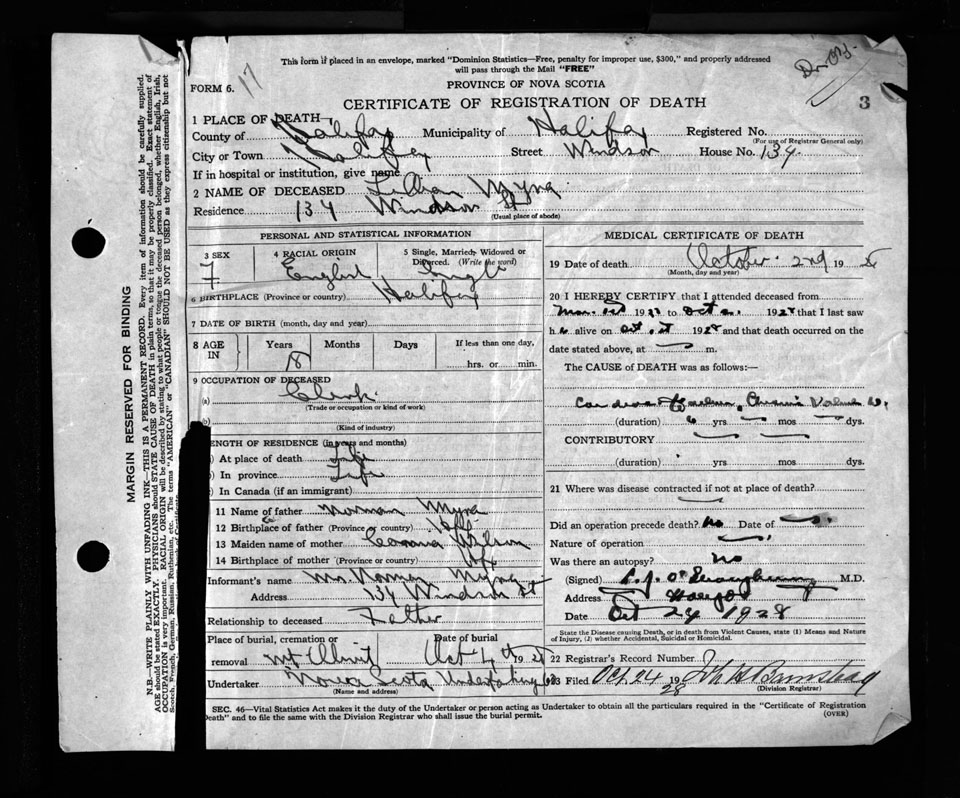 This form if placed in an envelope, marked "Dominion Statistics—Free, penalty for improper use, $300," and properly addressed
will pass through the Mail "FREE"
FORM 6. 17
PROVINCE OF NOVA SCOTIA
CERTIFICATE OF REGISTRATION OF DEATH
3
1 PLACE OF DEATH—
County of Halifax Municipality of Halifax Registered No.
(For use of Registrar General only)
City or Town Halifax Street Windsor House No. 134
If in hospital or institution, give name
2 NAME OF DECEASED Lillian Myra
Residence 134 Windsor St
(Usual place of abode)
PERSONAL AND STATISTICAL INFORMATION
3 SEX 4 RACIAL ORIGIN 5 Single, Married, Widowed or Divorced. (Write the word)
F English Single
6 BIRTHPLACE (Province or country) Halifax
7 DATE OF BIRTH (month, day and year)
8 AGE IN Years Months Days If less than one day,
18 hrs. or min.
9 OCCUPATION OF DECEASED
(a) Clerk
(Trade or occupation or kind of work)
(b)
(Kind of industry)
LENGTH OF RESIDENCE (in years and months)
At place of death Life
In province Life
In Canada (if an immigrant)
11 Name of father Norman Myra
12 Birthplace of father (Province or country) Hfx
13 Maiden name of mother Wilson
14 Birthplace of mother (Province or country) Hfx
Informant's name Norman Myra
Address 134 Windsor St
Relationship to deceased Father
Place of burial, cremation or Date of burial
removal Mt Olivet Oct 4th 1928
Undertaker Nova Scotia Undertaking Co
(Name and address)
MEDICAL CERTIFICATE OF DEATH
19 Date of death October 2nd 1928
(Month, day and year)
20 I HEREBY CERTIFY that I attended deceased from
192 to Oct 2 1928 that I last saw
h alive on Oct 1928 and that death occurred on
date stated above, at m.
The CAUSE of DEATH was as follows:—
(duration) 6 yrs mos dys.
CONTRIBUTORY
(duration) yrs mos dys.
21 Where was disease contracted if not at place of death?
Did an operation precede death? no Date of
Nature of operation
Was there an autopsy? no
(Signed) M.D.
Address Halifax
Date Oct 24 1928
State the Disease causing Death, or in death from Violent Causes, state (1) Means and Nature
of Injury, (2) whether Accidental, Suicidal or Homicidal.
22 Registrar's Record Number
23 Filed Oct 24 1928
(Division Registrar)
SEC. 46—Vital Statistics Act makes it the duty of the Undertaker or person acting as Undertaker to obtain all the particulars required in the "Certificate of Registration
Death" and to file the same with the Division Registrar who shall issue the burial permit.
(OVER)
MARGIN RESERVED FOR BINDING
N.B.—WRITE PLAINLY WITH UNFADING INK—THIS IS A PERMANENT RECORD. Every item of information should be carefully supplied.
AGE should be stated EXACTLY. PHYSICIANS should STATE CAUSE OF DEATH in plain terms, so that it may be properly classified. Exact statement of
OCCUPATION is very important. RACIAL ORIGIN will be described by stating to what people or tongue the deceased person belonged, whether English, Irish,
Scotch, French, German, Russian, Ruthenian, etc. The terms "AMERICAN" or "CANADIAN" SHOULD NOT BE USED as they express citizenship but not